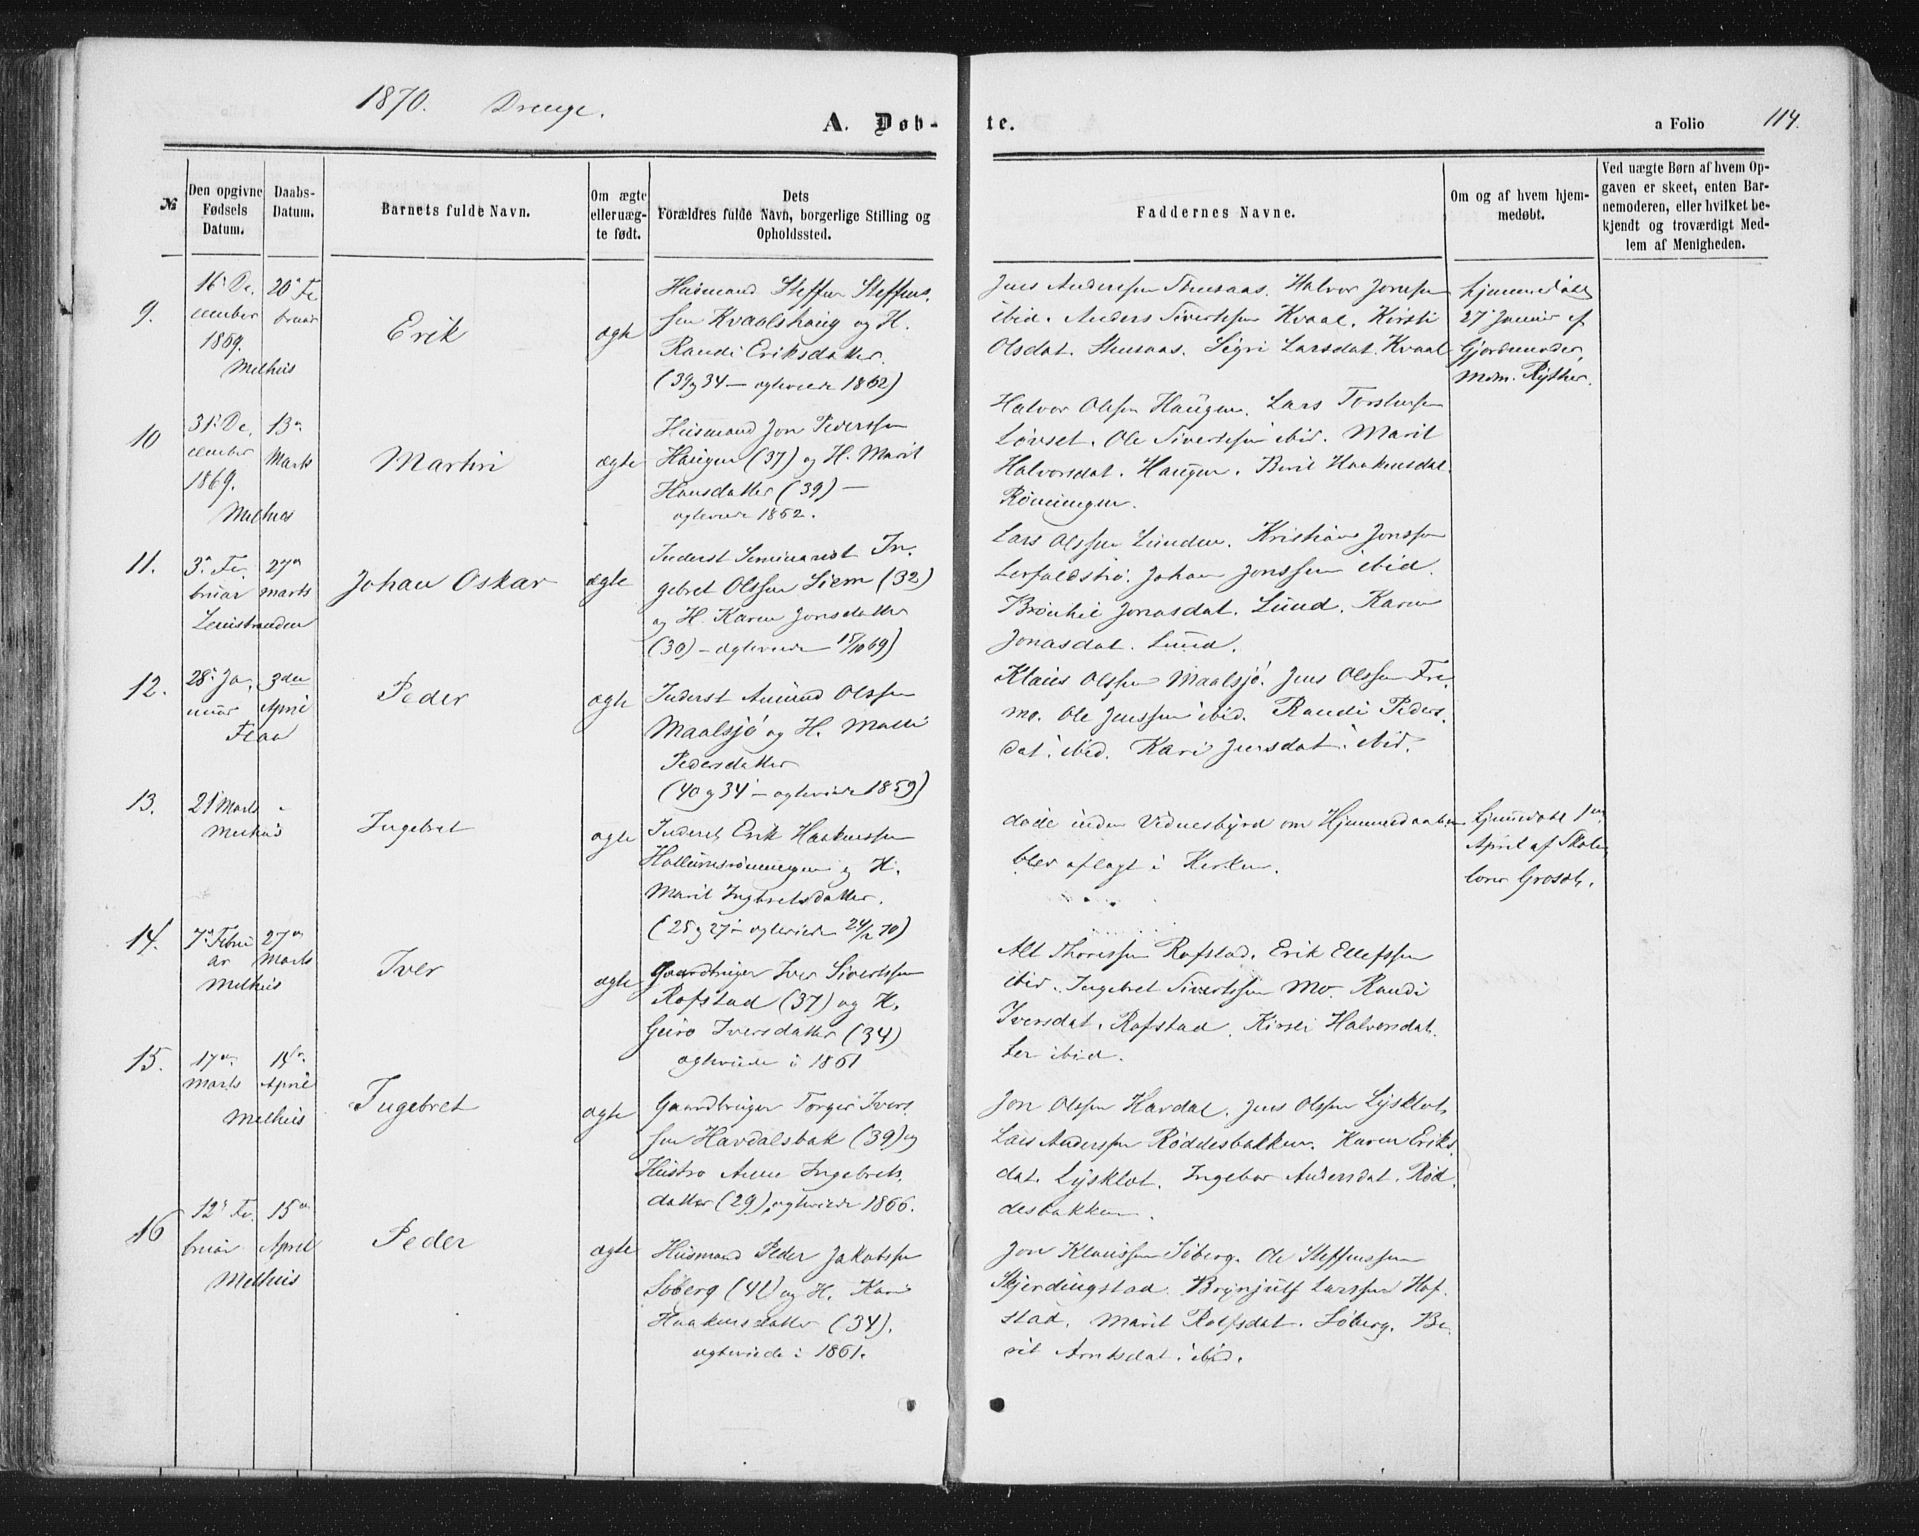 1870. Drenge.
A. Døb-
te.
a Folio
114.
№
Den opgivne Fødsels Datum.
Daabs-Datum.
Barnets fulde Navn.
Om ægte eller uægte født.
Dets Forældres fulde Navn, borgerlige Stilling og Opholdssted.
Faddernes Navne.
Om og af hvem hjemmedøbt.
Ved uægte Børn af hvem Opgaven er skeet, enten Barnemoderen, eller hvilket bekjendt og troværdigt Medlem af Menigheden.
9.
16. December 1869. Melhus
20 Februar
Erik
ægte
Husmand Steffen Steffens.
sen Kvaalshaug og H.
Randi Eriksdatter.
(39 og 34 - ægteviede 1862)
Jens Anderssen . Halvor Jonssen
ibid. Anders Sivertssen Kvaal. Kirsti
Olsdat. . Sigri Larsdat. Kvaal
hjemmedøbt
27 Januar af
Gjordemoder,
Mdm. Ryther.
10
31. December 1869. Melhus
13 Marts
Martin
ægte
Husmand Jon Pederssen
Haugen (37) og H. Marit
Hansdatter (39) -
ægteviede 1862.
Halvor Olssen Haugen. Lars
Løvset. Ole Sivertssen ibid. Marit
Halvorsdat. Haugen. Berit Haakensdat.
Rönningen.
11.
3 Februar Leinstranden
27 Marts
Johan Oskar
ægte
Inderst Seminarist In-
gebret Olssen Siem (32)
og H. Karen Jonsdatter
(30) - ægteviede 15/10 69)
Lars Olssen Lunden. Kristian Jonssen
. Johan Jonssen ibid.
Jonasdat. Lund. Karen
Jonasdat. Lund.
12.
28. Januar Flaa
3den April
Peder
ægte
Inderst Amund Olssen
Maalsjö og H. Malli
Pedersdatter
(40 og 34 - ægteviede 1859)
Klaus Olssen Maalsjö. Jens Olssen Fre-
mo. Ole Jenssen ibid. Randi Peders-
dat. ibid. Kari Jensdat. ibid.
13.
21 Marts Melhus
-
Ingebret
ægte
Inderst Erik Haakenssen
og H.
Marit Ingebretsdatter.
(25 og 27 - ægteviede 24/2 70)
döde inden Vidnesbyrd om Hjemmedaaben
blev aflagt i Kirken.
hjemmedøbt 1
April af Skole-
lærer .
14.
7 Februar Melhus
27 Marts
Iver
ægte
Gaardbruger Iver Sivertssen
Rofstad (37) og H.
Guro Iversdatter (34)
ægteviede i 1861
Rofstad. Erik Ellefssen
ibid. Ingebret Sivertssen Mo. Randi
Iversdat. Rofstad. Kirsti Halvorsdat-
ter ibid.
15.
17 Marts Melhus
15 April
Ingebret
ægte
Gaardbruger Torger Ivers-
sen Havdalsbak (39) og
Hustro Anne Ingebrets-
datter (29), ægteviede 1866.
Jon Olssen Havdal. Jens Olssen Lysklet.
Lars Anderssen Röddesbakken. Karen Eriks-
dat. Lysklet. Ingebor Andersdat. Röd-
desbakken.
16
12 Februar Melhus
15 April
Peder
ægte
Husmand Peder Jakobssen
Søberg (41) og H. Kari
Haakensdatter (34).
ægteviede i 1861.
Jon Klaussen Søberg. Ole Steffenssen
Skjerdingstad. Brynjulf Larssen Hof-
stad. Marit Rolfsdat. Søberg. Be-
rit Arntsdat. ibid.